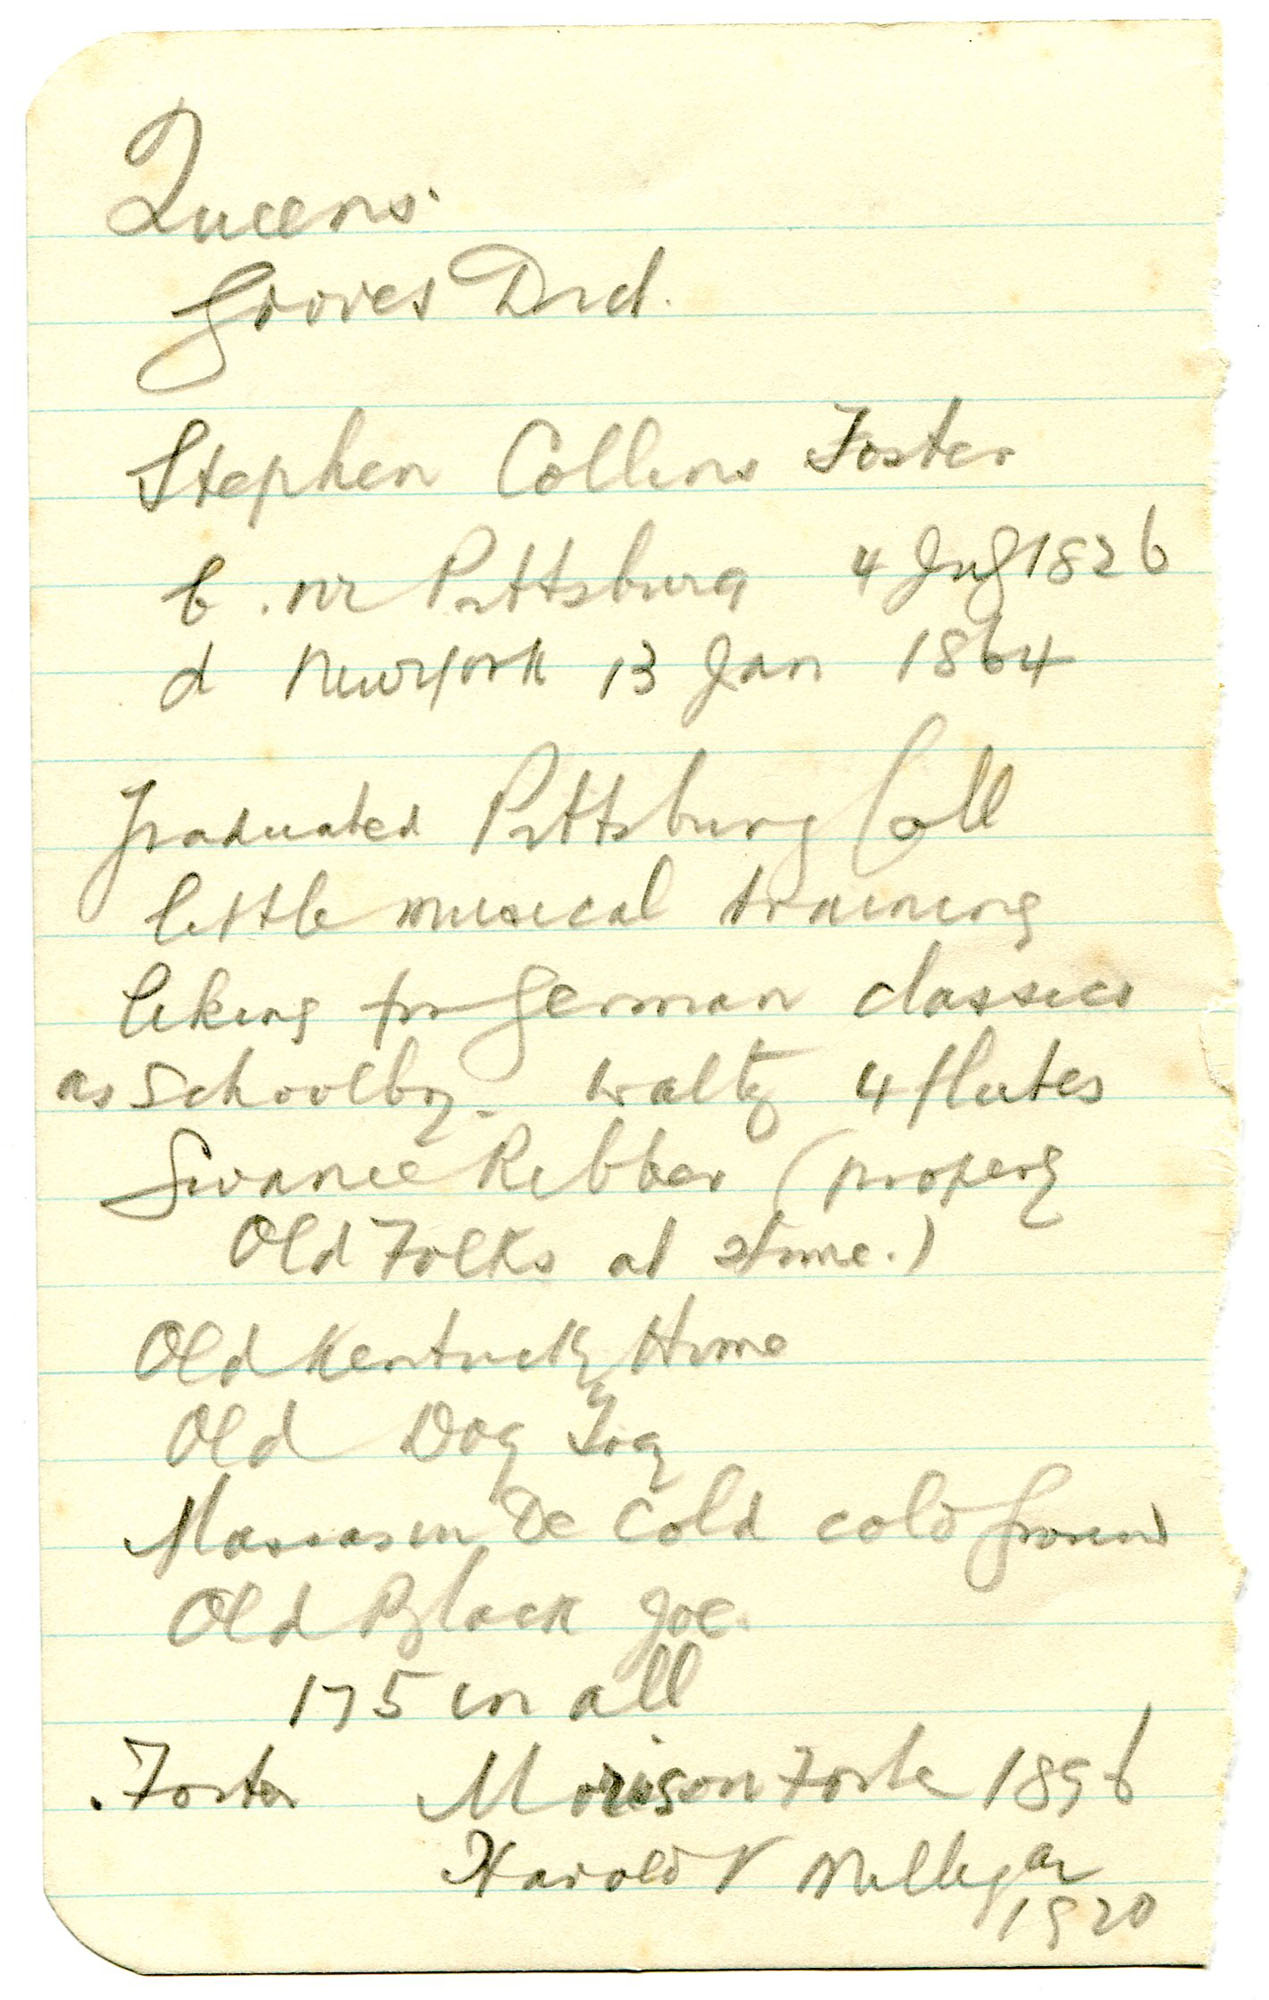 Queens
Groves Dict.
Stephen Collins Foster
b. nr Pittsburg 4 July 1826
d New York 13 Jan 1864
Graduated Pittsburg Coll
little musical training
liking for German classics
as schoolboy. Waltz 4 flutes
Swanee Ribber (properly
Old Folks at Home.)
Old Kentucky Home
Old Dog Tray
Massas in De Cold cold Ground
Old Black Joe.
175 in all
Foster Morison Foster 1896
Harold V Milligan
1920